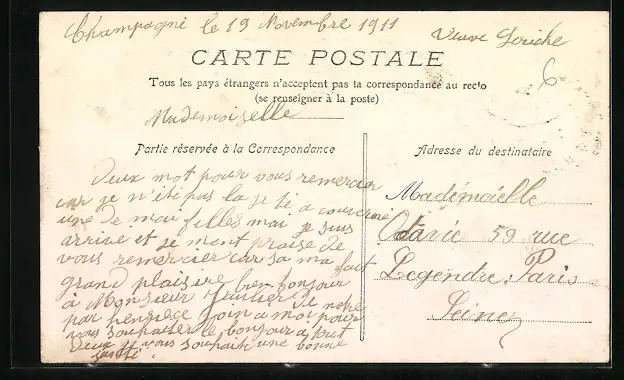 Champagné le 19 Novembre 1911
Veuve
6
CARTE POSTALE
Tous les pays étrangers n'acceptent pas la correspondance au recto
(se renseigner à la poste)
Mademoiselle
Partie réservée à la Correspondance
Deux mot pour vous remercier
car je n'iti pas la je te a couvriere
une de mai filles mai je suis
arrive et je ment praise de
vous remercier car sa ma fait
grand plaisire bien bonjour
à Monsieur de notre
par join a moi pour
vous souhaiter le bonjour a tout
deux je vous souhaite une bonne
santé.
Adresse du destinataire
Mademoielle
Otavie 59 rue
Legendre. Paris
Seine